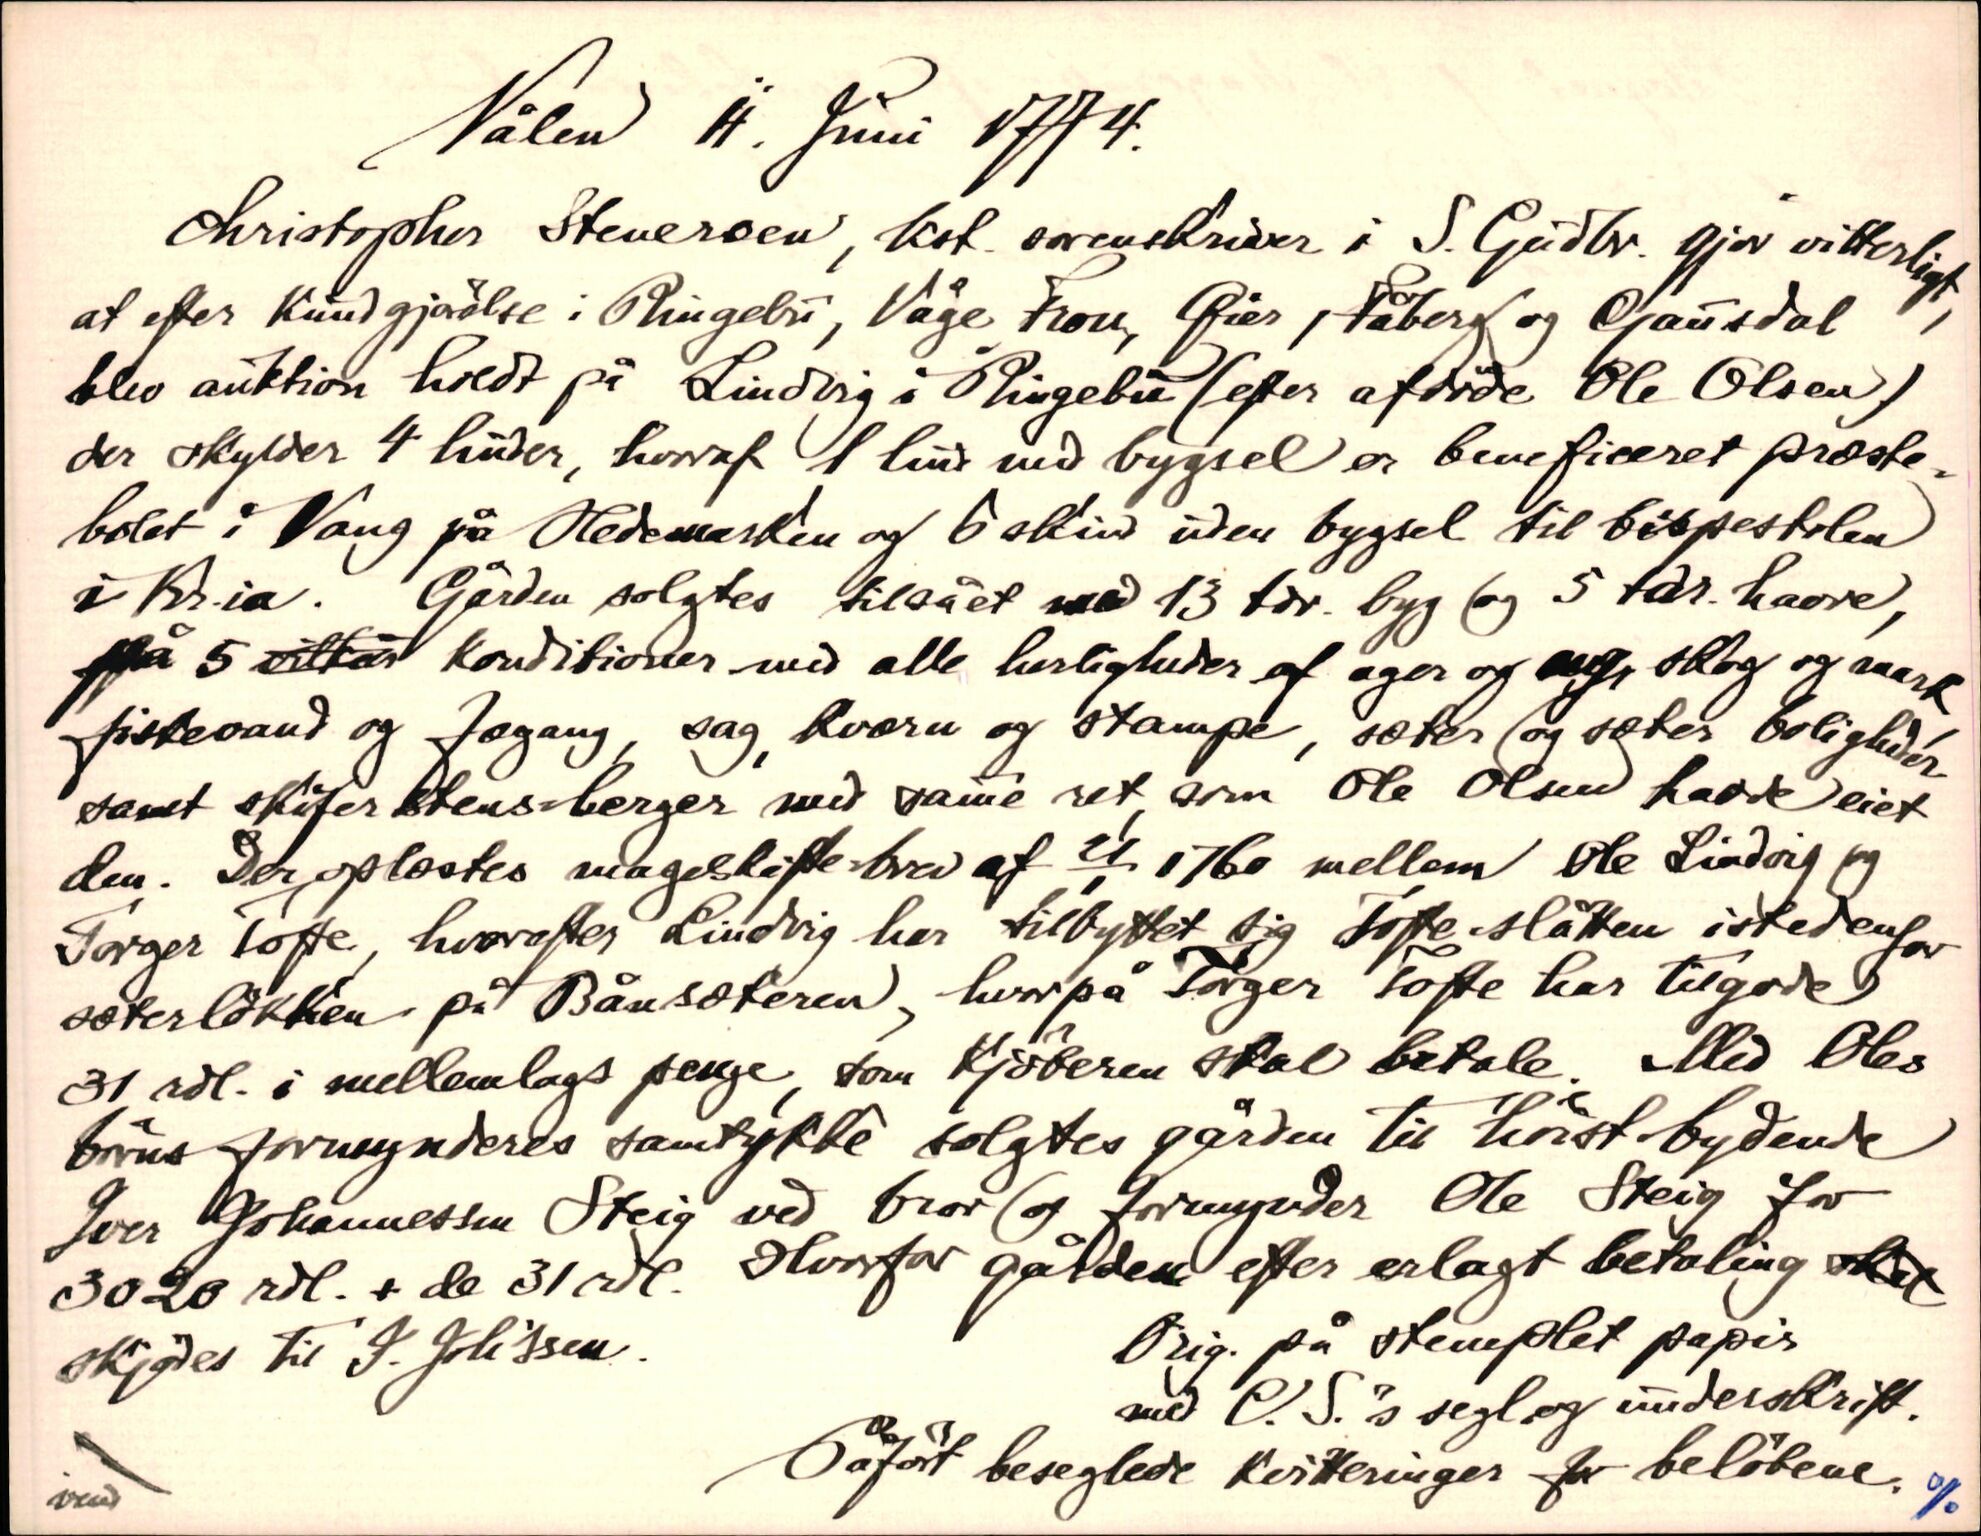 Vålen 4. Juni 1774.
Christopher Stenersen, kst. sorenskriver i S. Gudbr. gjør vitterligt,
at efter kundgjørelse i Ringebu, Våge, Fron, Øier, Fåberg og Gausdal
blev auktion holdt på Lindvig i Ringebu (efter afdøde Ole Olsen)
der skylder 4 huder, hvoraf 1 hud med bygsel er beneficeret præste-
bolet i Vang på Hedemarken og 6 skind uden bygsel til bispestolen
i Kr.ia. Gården solgtes tilsået med 13 tdr. byg og 5 tdr. havre,
på 5 vilkår konditioner med alle herligheder af ager og eng, skog og mark,
fiskevand og fægang, sag, kværn og stampe, sæter og sæter boligheder
samt skifer stens-berger med samme ret, som Ole Olsen havde eiet
den. Der oplæstes mageskifte-brev af 1760 mellem Ole Lindvig og
Torger Tofte, hvorefter Lindvig har tilbyttet sig Tofte-slåtten istedenfor
sæterløkken på Bånsæteren, hvorpå Torger Tofte har tilgode
31 rdl. i mellemlags penge, som kjøberen skal betale. Med Oles
børns formynderes samtykke solgtes gården til høist-bydende
Iver Johannessen Steig ved bror og formynder Ole Steig for
3020 rdl. + de 31 rdl. Hvorfor gården efter erlagt betaling skal
skjødes til I. Joh'ssen.
Orig. på stemplet papir
med C. S.'s segl og underskrift.
Påført beseglede kvitteringer for beløbene.
vend
%